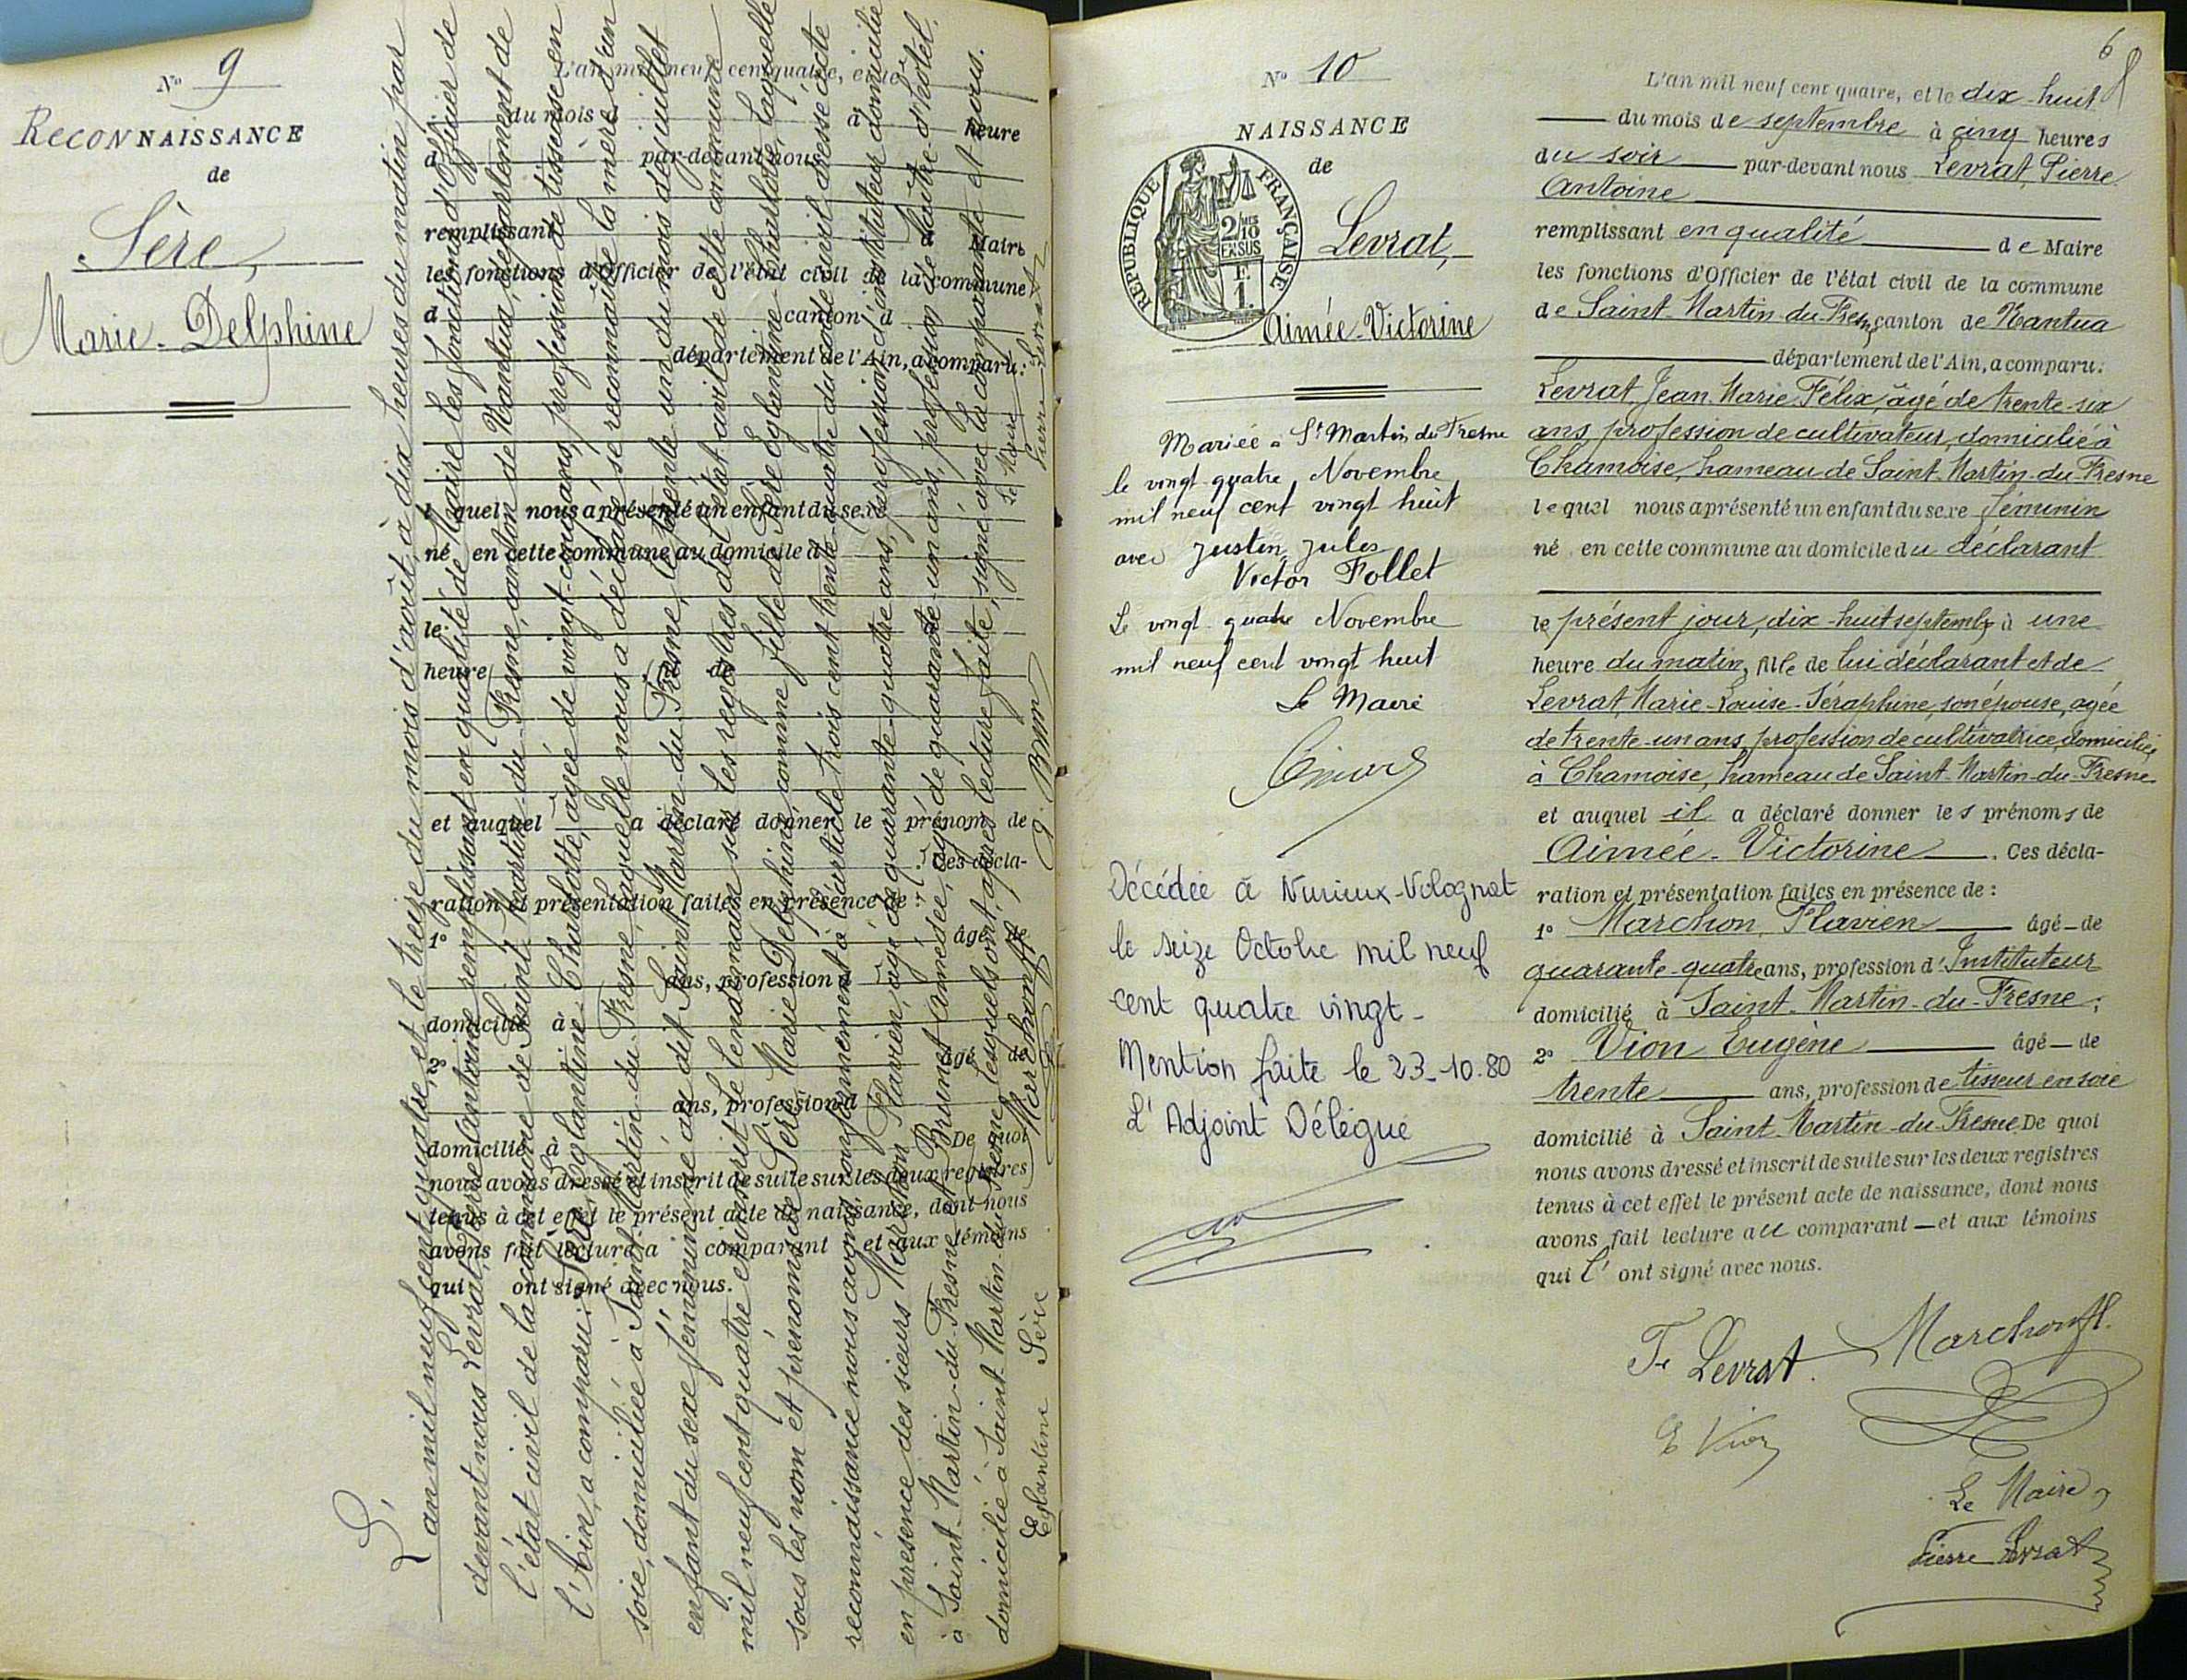 No 9
RECONNAISSANCE
de
Sère,
Marie-Delphine
L'an mil neuf cent quatre, et le treize du mois d'août, à dix heures du matin par
devant nous Levrat, Pierre Antoine remplissant en qualité de Maire les fonctions d'Officier de
l'état civil de la commune de Saint-Martin-du-Fresne, canton de Nantua, département de
l'Ain, a comparu: Sère, Eglantine-Charlotte, âgée de vingt-cinq ans, profession de tisseuse en
soie, domiciliée à Saint-Martin-du-Fresne, laquelle nous a déclaré se reconnaître la mère d'un
enfant du sexe féminin, né au dit Saint-Martin-du-Fresne, le trente un du mois de juillet
mil neuf cent quatre et inscrit le lendemain sur les registres de l'état civil de cette commune
sous les nom et prénoms de Sère Marie Delphine, comme fille de Sère Eglantine Charlotte, laquelle
reconnaissance nous avons conformément à l'article trois cent trente-quatre du code civil dressé acte
en présence des sieurs Marchon Flavien, âgé de quarante-quatre ans, profession d'instituteur domicilié
à Saint-Martin-du-Fresne et Brunet Amédée, âgé de quarante-un ans, profession de maître-d'hôtel,
domicilié à Saint-Martin-du-Fresne, lesquels ont, après lecture faite, signé avec la comparante et nous.
Eglantine Sère Marchonfl A. Brun
Le Maire
Pierre Levrat
L'an mil neuf cent quatre, et le
du mois d à heure
d par-devant nous
remplissant d Maire
les fonctions d'Officier de l'état civil de la commune
d canton d
département de l'Ain, a comparu:
l quel nous a présenté un enfant du sexe
né en cette commune au domicile d
le
heure de
et auquel a déclaré donner le prénom de
. Ces décla-
ration et présentation faites en présence de :
1° âgé de
ans, profession d
domicilié à
2° âgé de
ans, profession d
domicilié à De quoi
nous avons dressé et inscrit de suite sur les deux registres
tenus à cet effet le présent acte de naissance, dont nous
avons fait lecture a comparant et aux témoins
qui ont signé avec nous.
No 10
NAISSANCE
de
RÉPUBLIQUE FRANÇAISE
2/10
EN SUS
F.
1.
Levrat,
Aimée-Victorine
Mariée à St Martin du Fresne
le vingt-quatre Novembre
mil neuf cent vingt huit
avec Justin Jules
Victor Follet
Le vingt-quatre Novembre
mil neuf cent vingt huit
Le Maire
Décédée à Nurieux-Volognat
le seize Octobre mil neuf
cent quatre vingt-
Mention faite le 23-10-80
L'Adjoint Délégué
6
L'an mil neuf cent quatre, et le dix-huit
du mois de septembre à cinq heures
du soir par-devant nous Levrat, Pierre
Antoine
remplissant en qualité de Maire
les fonctions d'Officier de l'état civil de la commune
de Saint-Martin-du-Fresne canton de Nantua
département de l'Ain, a comparu:
Levrat Jean Marie Félix, âgé de trente-six
ans, profession de cultivateur, domicilié à
Chamoise, hameau de Saint-Martin-du-Fresne
lequel nous a présenté un enfant du sexe féminin
né en cette commune au domicile du déclarant
le présent jour, dix-huit septembre à une
heure du matin, fille de lui déclarant et de
Levrat, Marie-Louise-Séraphine, son épouse, agée
de trente-un ans, profession de cultivatrice, domiciliée
à Chamoise, hameau de Saint-Martin-du-Fresne
et auquel il a déclaré donner les prénoms de
Aimée-Victorine. Ces décla-
ration et présentation faites en présence de :
1° Marchon, Flavien âgé de
quarante-quatre ans, profession d'Instituteur
domicilié à Saint-Martin-du-Fresne;
2° Vion Eugène âgé de
trente ans, profession de tisseur en soie
domicilié à Saint-Martin-du-Fresne De quoi
nous avons dressé et inscrit de suite sur les deux registres
tenus à cet effet le présent acte de naissance, dont nous
avons fait lecture au comparant et aux témoins
qui l'ont signé avec nous.
F. Levrat. Marchonfl.
E Vion
Le Maire,
Pierre Levrat